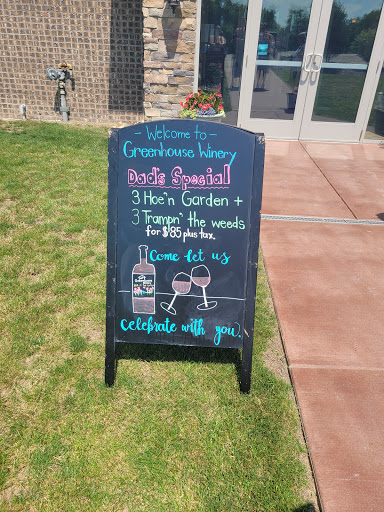 - Welcome to -
Greenhouse Winery
Dad's Special
3 Hoe'n Garden +
3 Trampn' the weeds
for $85 plus tax.
Come let us
celebrate with you.